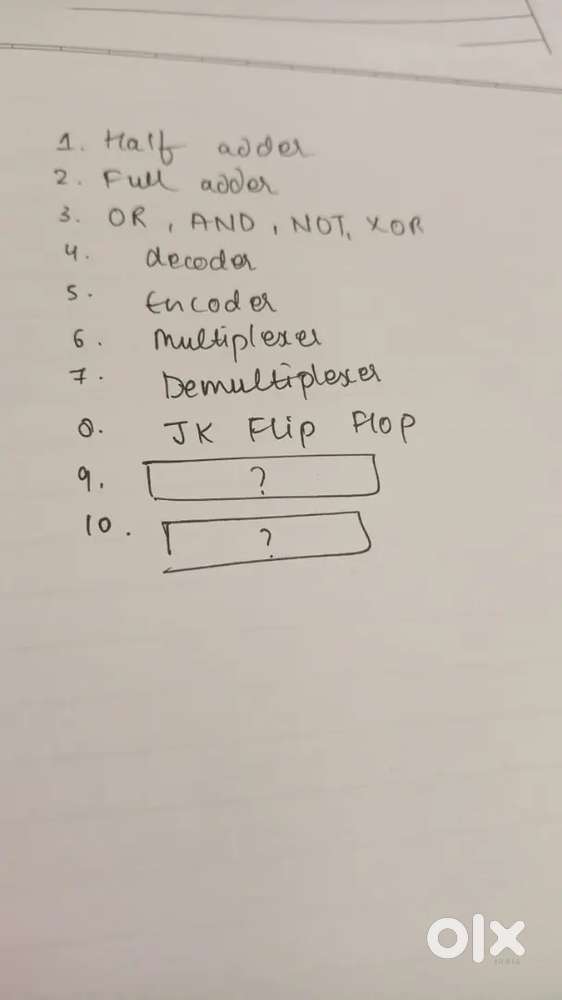 1. Half adder
2. Full adder
3. OR, AND, NOT, XOR
4. decoder
5. Encoder
6. Multiplexer
7. Demultiplexer
8. JK Flip Flop
9. ?
10. ?
olx
INDIA